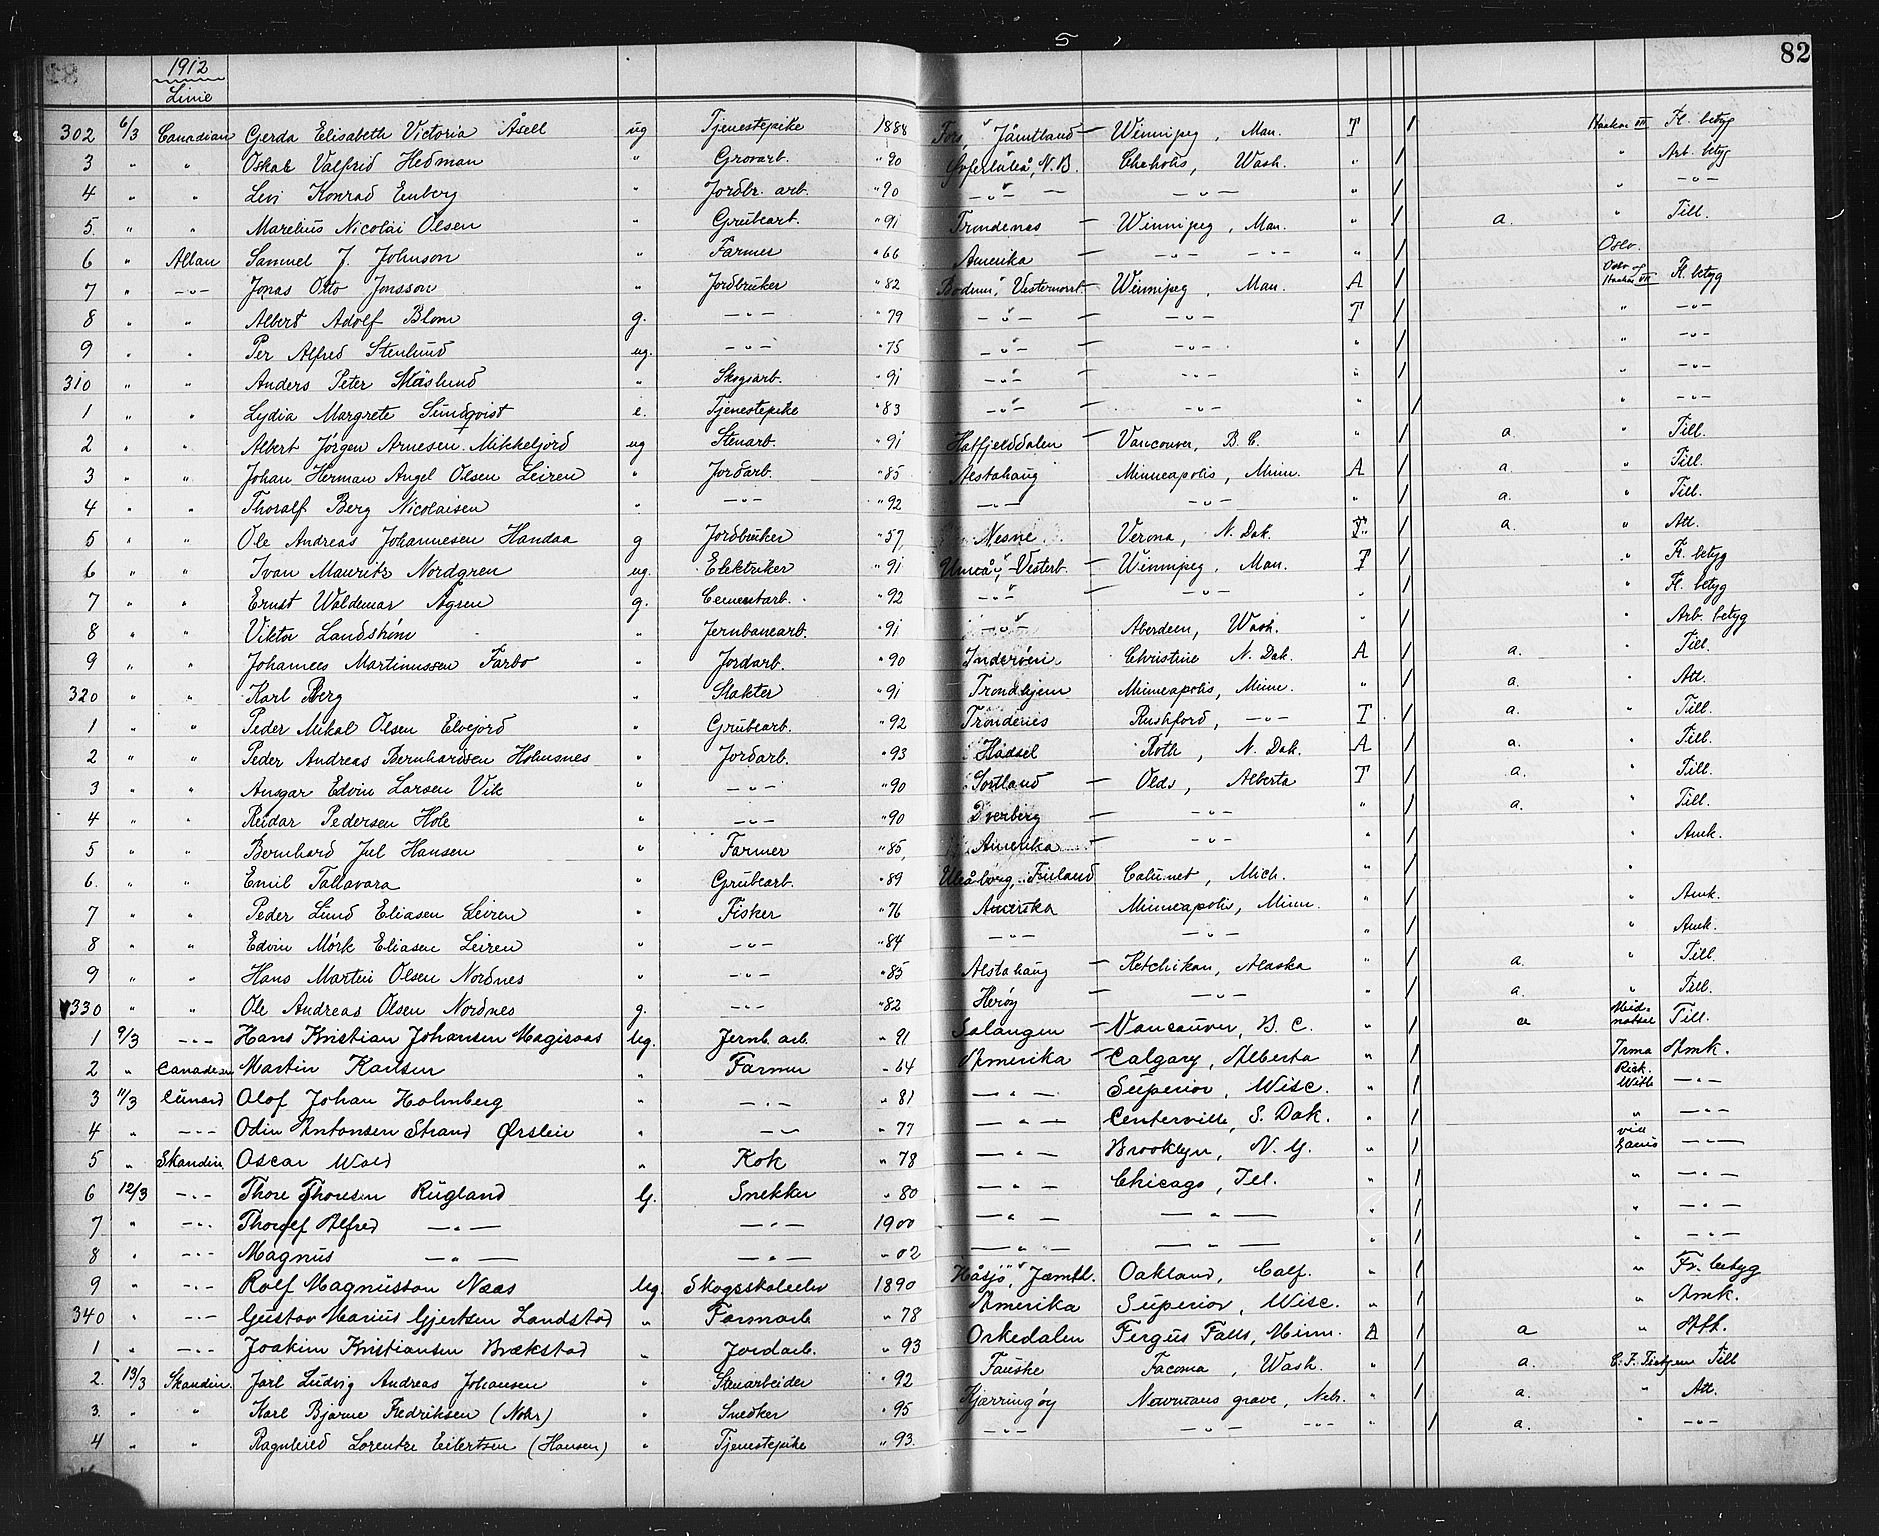 5
82
1912
Linie
302 6/3 Canadian Gerda Elisabeth Victoria Åsell ug Tjenestepike 1888 Fors, Jämtland — Winnipeg, Man. T / Haakon VII Fl. betyg
3 " " Oskar Valfrid Hedman " Grovarb. " 90 Öfverluleå, N.B. Chehalis, Wash. " / " Arb. betyg
4 " " Levi Konrad Enberg " Jordbr. arb. " 90 —"— — —"— " / " —"—
5 " " Marelius Nicolai Olsen " Grubearb. " 91 Trondenes — Winnipeg, Man. " / a. " Till.
6 " Allan Samuel J. Johnson " Farmer " 66 Amerika — —"— —"— " / Oslo.
7 " —"— Jonas Otto Jonsson " Jordbruker " 82 Bodum, Vesternorrl. — Winnipeg, Man. A / Oslo og Haakon VII Fl. betyg
8 " " Albert Adolf Blom g. —"— " 79 —"— — —"— T / " —"—
9 " " Per Alfred Stenlund ug. —"— " 75 —"— —"— " / " —"—
310 " " Anders Peter Näslund " Skogsarb. " 91 —"— —"— " / " —"—
1 " " Lydia Margrete Sundqvist e. Tjenestepike " 83 —"— —"— " / " —"—
2 " " Albert Jörgen Arnesen Mikkeljord ug Stenarb. " 91 Hatfjelddalen — Vancouver, B.C. " / a. " Till.
3 " " Johan Herman Angel Olsen Leiren " Jordarb. " 85 Alstahaug Minneapolis, Minn. A / a. " Till.
4 " " Thoralf Berg Nicolaisen " —"— " 92 —"— —"— " / a. " Till.
5 " " Ole Andreas Johannesen Handaa g Jordbruker " 57 Nesne Verona, N. Dak. T / a. " Att.
6 " " Ivan Mauritz Nordgren ug. Elektriker " 91 Umeå, Vesterb. — Winnipeg, Man. T / " Fl. betyg
7 " " Ernst Waldemar Ågren g. Cementarb. " 92 —"— — —"— " / " Fl. betyg
8 " " Viktor Landström " Jernbanearb. " 91 —"— Aberdeen, Wash. " / " Arb. betyg
9 " " Johannes Martinussen Farbo " Jordarb. " 90 Inderøen Christine N. Dak. A / a. " Till.
320 " " Karl Berg " Slakter " 91 Trondhjem Minneapolis, Minn. " / a. " Att.
1 " " Peder Mikal Olsen Elvejord " Grubearb. " 92 Trondenes Rushford, —"— T / a. " Till.
2 " " Peder Andreas Bernhardsen Holmsnes " Jordarb. " 93 Hadsel Roth, N. Dak. A / a. " Till.
3 " " Ansgar Edvin Larsen Vik " —"— " 90 Sortland — Olds, Alberta T / a. " Till.
4 " " Reidar Pedersen Hole " —"— " 90 Dverberg — —"— " / a. " Till.
5 " " Bernhard Jul Hansen " Farmer " 85 Amerika — —"— " / " Amk.
6. " " Emil Tallavara " Grubearb. " 89 Uleåborg, Finland Calumet, Mich. " / "
7 " " Peder Lund Eliasen Leiren " Fisker " 76 Amerika Minneapolis, Minn. " / " Amk.
8 " " Edvin Mörk Eliasen Leiren " —"— " 84 —"— —"— " / " Amk.
9 " " Hans Martin Olsen Nordnes " —"— " 85 Alstahaug — Ketchikan, Alaska " / a. " Till.
330 " " Ole Andreas Olsen Nordnes g. —"— " 82 Herøy —"— " / a. " Till.
1 9/3 —"— Hans Kristian Johansen Magisaas ug. Jernb. arb. " 91 Salangen — Vancouver, B.C. " / a Midnatsol Till.
2 " Canadian Martin Karlsen " Farmer " 64 Amerika — Calgary, Alberta " / Irma Amk.
3 11/3 Cunard Olof Johan Holmberg " —"— " 81 —"— Superior, Wisc. " / Risk. With —"—
4 " —"— Odin Antonsen Strand Ørslein " —"— " 77 —"— Centerville, S. Dak. " / " —"—
5 " Skandin. Oscar Wold " Kok " 78 —"— Brooklyn, N.Y. " / —"—
6 12/3 —"— Thore Thoresen Rugland G. Snekker " 80 —"— Chicago, Ill. " / " —"—
7 " —"— Thorlef Alfred —"— —"— 1900 —"— —"— " / " —"—
8 " —"— Magnus —"— —"— " 02 —"— —"— " / " —"—
9 " —"— Rolf Magnusson Næss ug. Skogsskoleelev 1890 Håsjö, Jæmtl. Oakland, Calf. " / " Fr. betyg
340 " —"— Gustav Marius Gjertsen Landstad " Farmarb " 78 Amerika Superior, Wisc. " / " Amk.
1 " —"— Joakim Kristiansen Brækstad " Jordarb. " 93 Orkedalen Fergus Falls, Minn. A / a " Att.
2. 13/3 Skandin. Jarl Ludvig Andreas Johansen " Stenarbeider " 92 Fauske Tacoma, Wash. " / a. C.F. Tietgen Till
3. " " Karl Bjarne Fredriksen (Nohr) " Snedker " 95 Kjerringøy Newmans grove, Neb. " / a. " Att.
4 " " Ragnhild Lorentze Eilertsen (Hansen) " Tjenestepike " 93. —"— —"— —"— " / a. " —"—